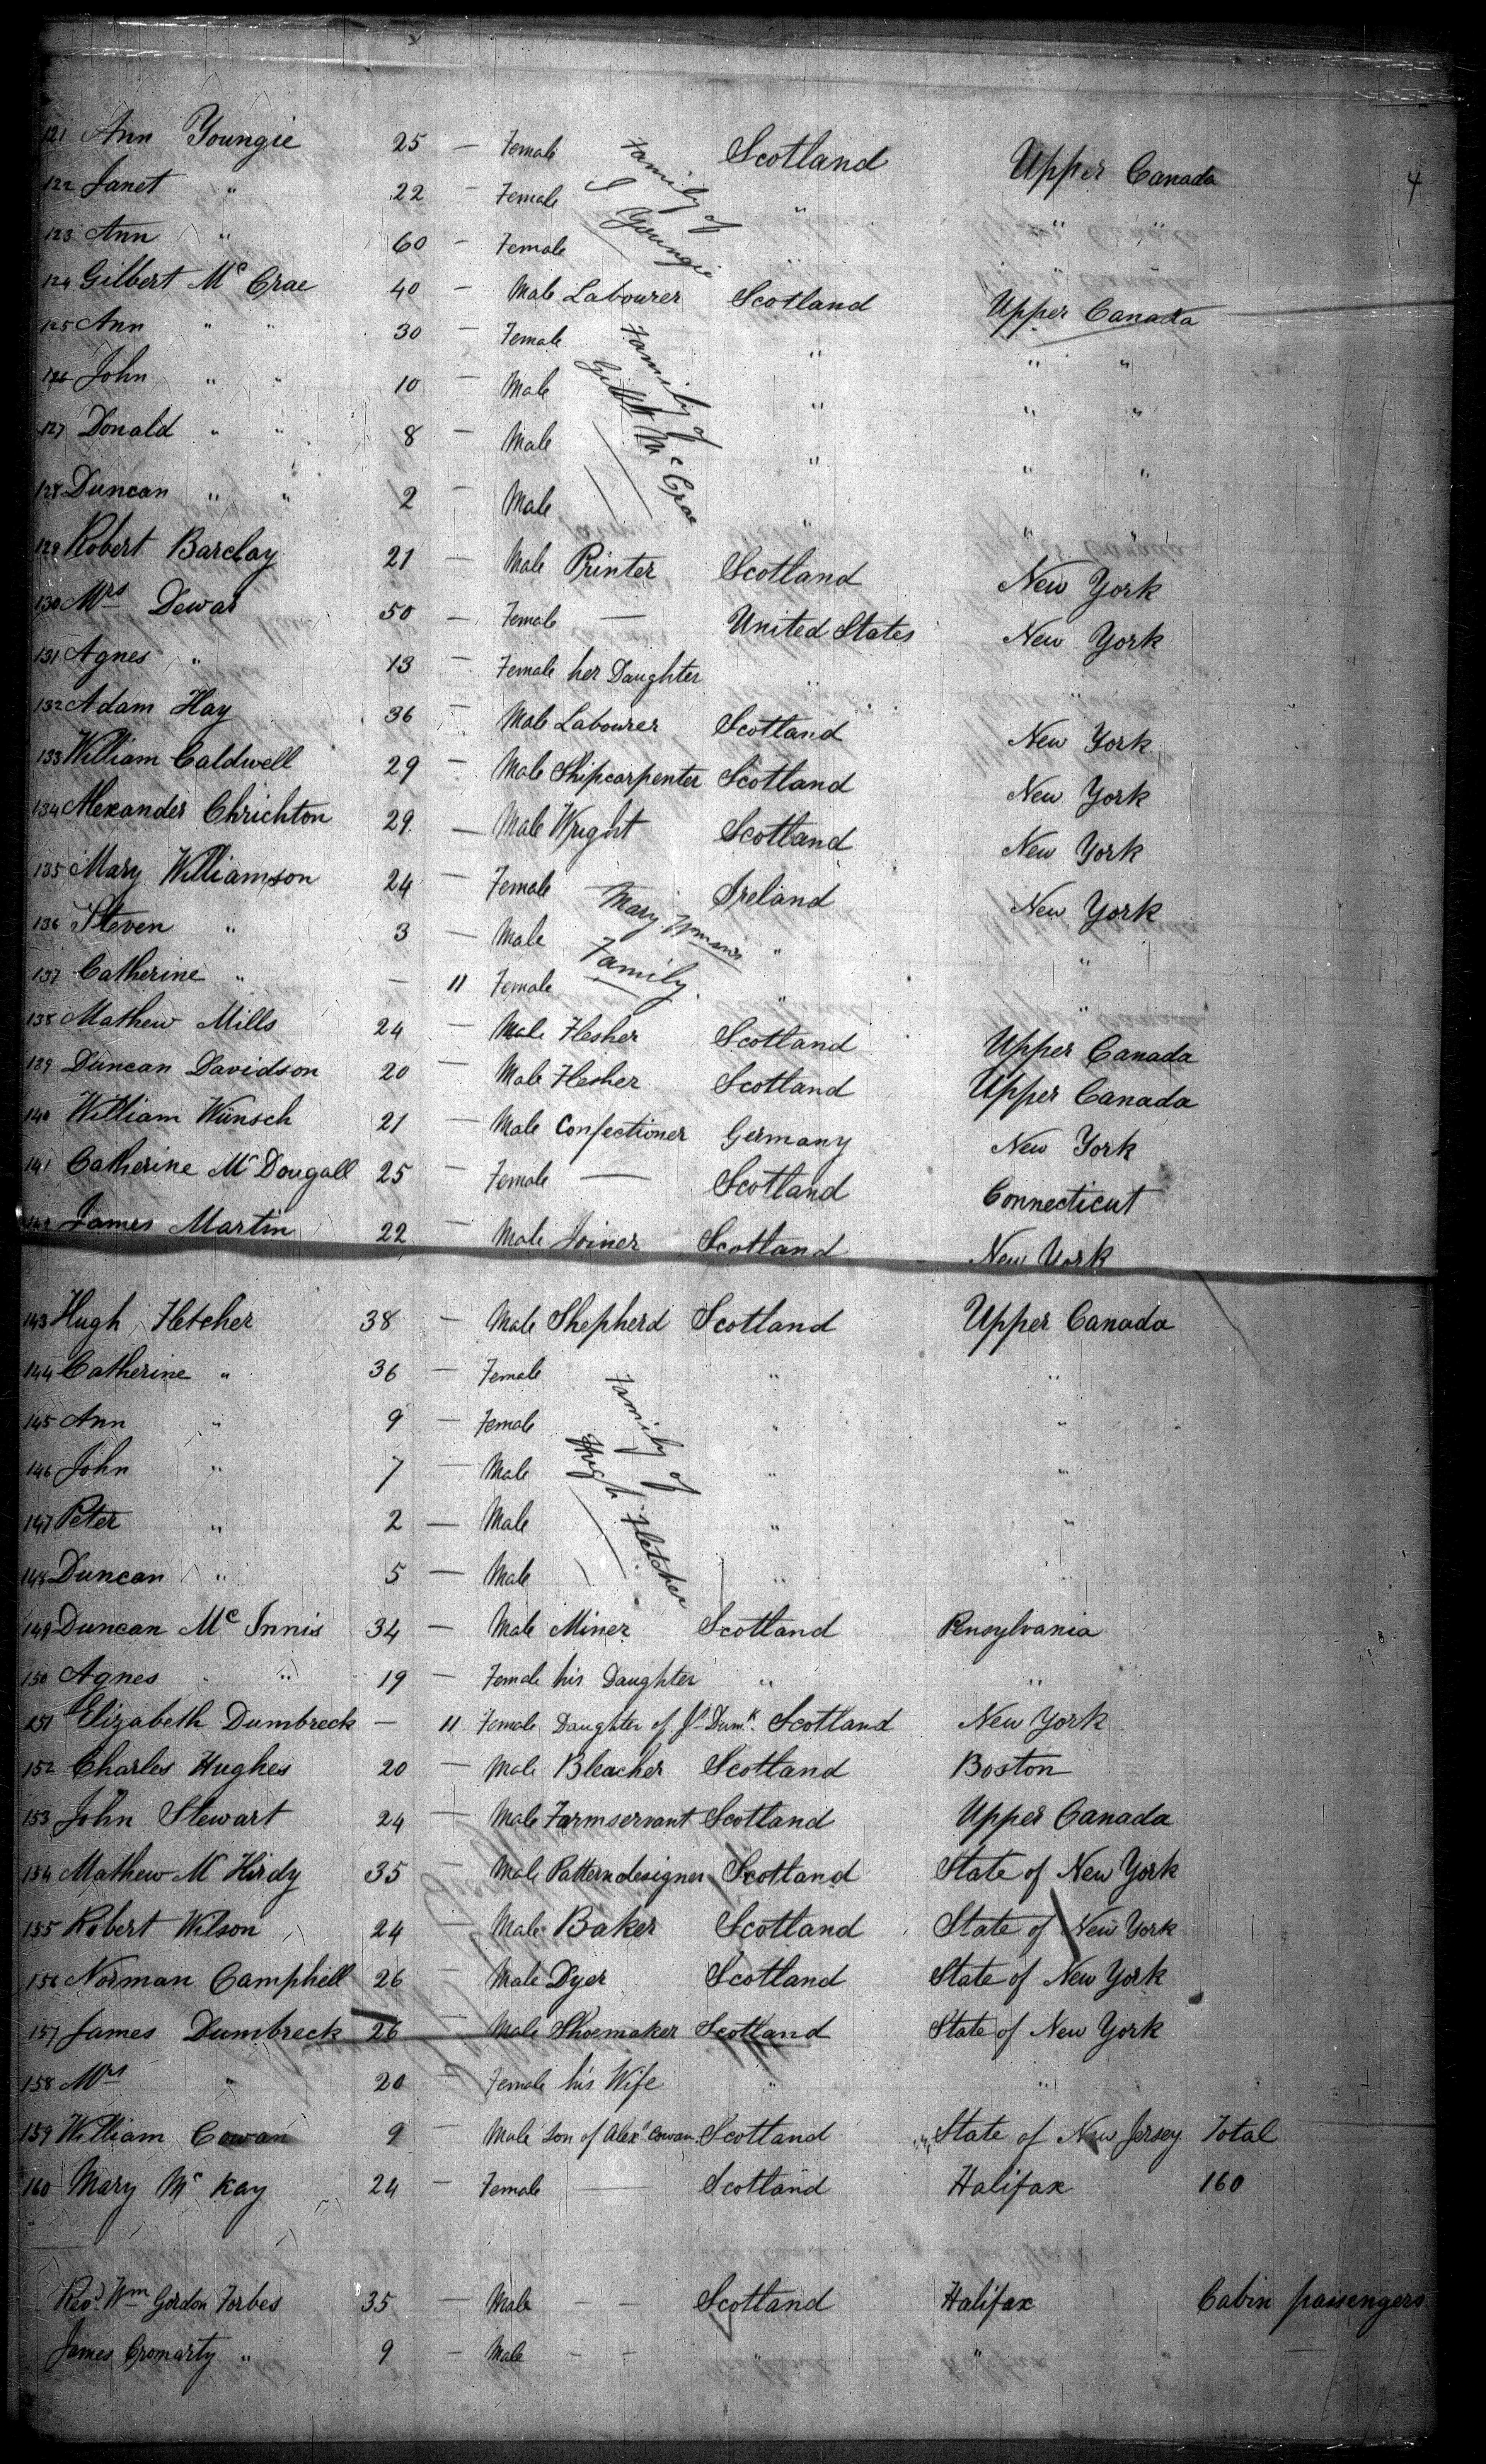 4
121 Ann Youngie 25 — Female Scotland Upper Canada
122 Janet " 22 — Female " " "
123 Ann " 60 — Female " " "
Family of J Youngie
124 Gilbert Mc Crae 40 — Male Labourer Scotland Upper Canada
125 Ann " " 30 — Female " " "
126 John " " 10 — Male " " "
127 Donald " " 8 — Male " " "
128 Duncan " " 2 — Male " " "
Family of Gilbt Mc Crae
129 Robert Barclay 21 — Male Printer Scotland New York
130 Mrs Dewar 50 — Female — United States New York
131 Agnes " 13 — Female her Daughter " "
132 Adam Hay 36 — Male Labourer Scotland New York
133 William Caldwell 29 — Male Shipcarpenter Scotland New York
134 Alexander Chrichton 29 — Male Wright Scotland New York
135 Mary Williamson 24 — Female Ireland New York
136 Steven " 3 — Male " "
137 Catherine " — 11 Female " "
Mary Wmson's Family
138 Mathew Mills 24 — Male Flesher Scotland Upper Canada
139 Duncan Davidson 20 — Male Flesher Scotland Upper Canada
140 William Wünsch 21 — Male Confectioner Germany New York
141 Catherine Mc Dougall 25 — Female — Scotland Connecticut
142 James Martin 22 — Male Joiner Scotland New York
143 Hugh Fletcher 38 — Male Shepherd Scotland Upper Canada
144 Catherine " 36 — Female " "
145 Ann " 9 — Female " "
146 John " 7 — Male " "
147 Peter " 2 — Male " "
148 Duncan " 5 — Male " "
Family of Hugh Fletcher
149 Duncan Mc Innis 34 — Male Miner Scotland Pensylvania
150 Agnes " 19 — Female his Daughter " "
151 Elizabeth Dumbreck — 11 Female Daughter of Js Dumk. Scotland New York
152 Charles Hughes 20 — Male Bleacher Scotland Boston
153 John Stewart 24 — Male Farmservant Scotland Upper Canada
154 Mathew Mc Hirdy 35 — Male Patterndesigner Scotland State of New York
155 Robert Wilson 24 — Male Baker Scotland State of New York
156 Norman Camphell 26 — Male Dyer Scotland State of New York
157 James Dumbreck 26 — Male Shoemaker Scotland State of New York
158 Mrs " 20 — Female his Wife " "
159 William Cowan 9 — Male Son of Alexr Cowan Scotland State of New Jersey Total
160 Mary Mc Kay 24 — Female — Scotland Halifax 160
Revd. Wm Gordon Forbes 35 — Male — — Scotland Halifax Cabin passengers
James Cromarty " 9 — Male — — " " —